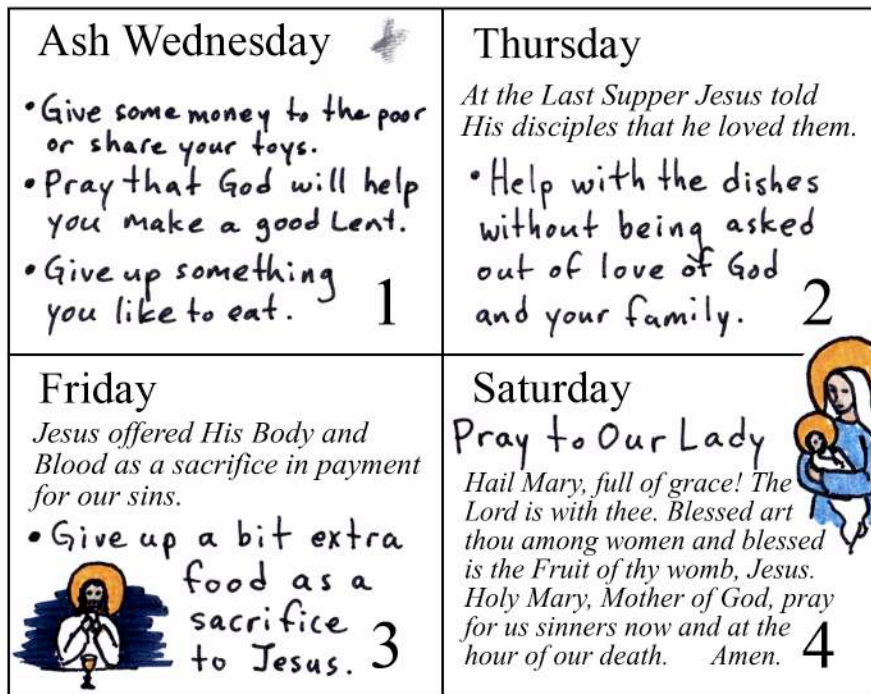 Ash Wednesday
• Give some money to the poor
or share your toys.
• Pray that God will help
you make a good Lent.
• Give up something
you like to eat.
1
Thursday
At the Last Supper Jesus told
His disciples that he loved them.
• Help with the dishes
without being asked
out of love of God
and your family.
2
Friday
Jesus offered His Body and
Blood as a sacrifice in payment
for our sins.
• Give up a bit extra
food as a
sacrifice
to Jesus.
3
Saturday
Pray to Our Lady
Hail Mary, full of grace! The
Lord is with thee. Blessed art
thou among women and blessed
is the Fruit of thy womb, Jesus.
Holy Mary, Mother of God, pray
for us sinners now and at the
hour of our death. Amen.
4